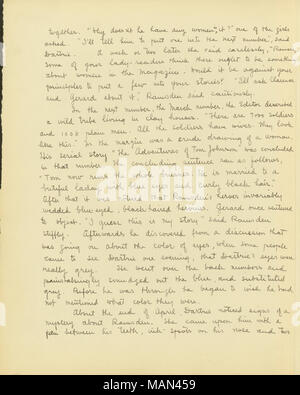 together. "Why doesn't he have any women in it?" one of the girls
asked. "I'll tell him to put one into the next number," said
Dartrie. A week or two later she said carelessly, "Ramsden,
some of your lady-readers think there ought to be something
about women in the magazine. Would it be against your
principles to put a few into your stories?" "I'll ask Clarence
and Gerard about it," Ramsden said cautiously.
In the next number, the March number, the Editor described
a wild tribe living in clay houses. "There are 700 soldiers
and 1008 plain men. All the soldiers have wives. They look
like this." In the margin was a crude drawing of a woman.
His serial story "The Adventures of Tom Johnson" was concluded
in that number. The concluding sentence ran as follows:
"Tom now rules the whole buisness and is married to a
butiful lady with blue eyes and curly black hair."
After that it was noted that Ramsden's heroes invariably
wedded blue-eyed, black-haired heroines. Gerard once ventured
to object. "I guess this is my story" said Ramsden
stiffly. Afterwards he discovered from a discussion that
was going on about the color of eyes, when some people
came to see Dartrie one evening, that Dartrie's eyes were
really grey. He went over the back numbers and
painstakingly smudged out the blue and substituted
grey. Before he was through he began to wish he had
not mentioned what color they were.
About the end of April Dartrie noticed signs of a
mystery about Ramsden. She came upon him with a
pen between his teeth, ink-spots on his nose and two
alamy
Image ID: MAN459
www.alamy.com